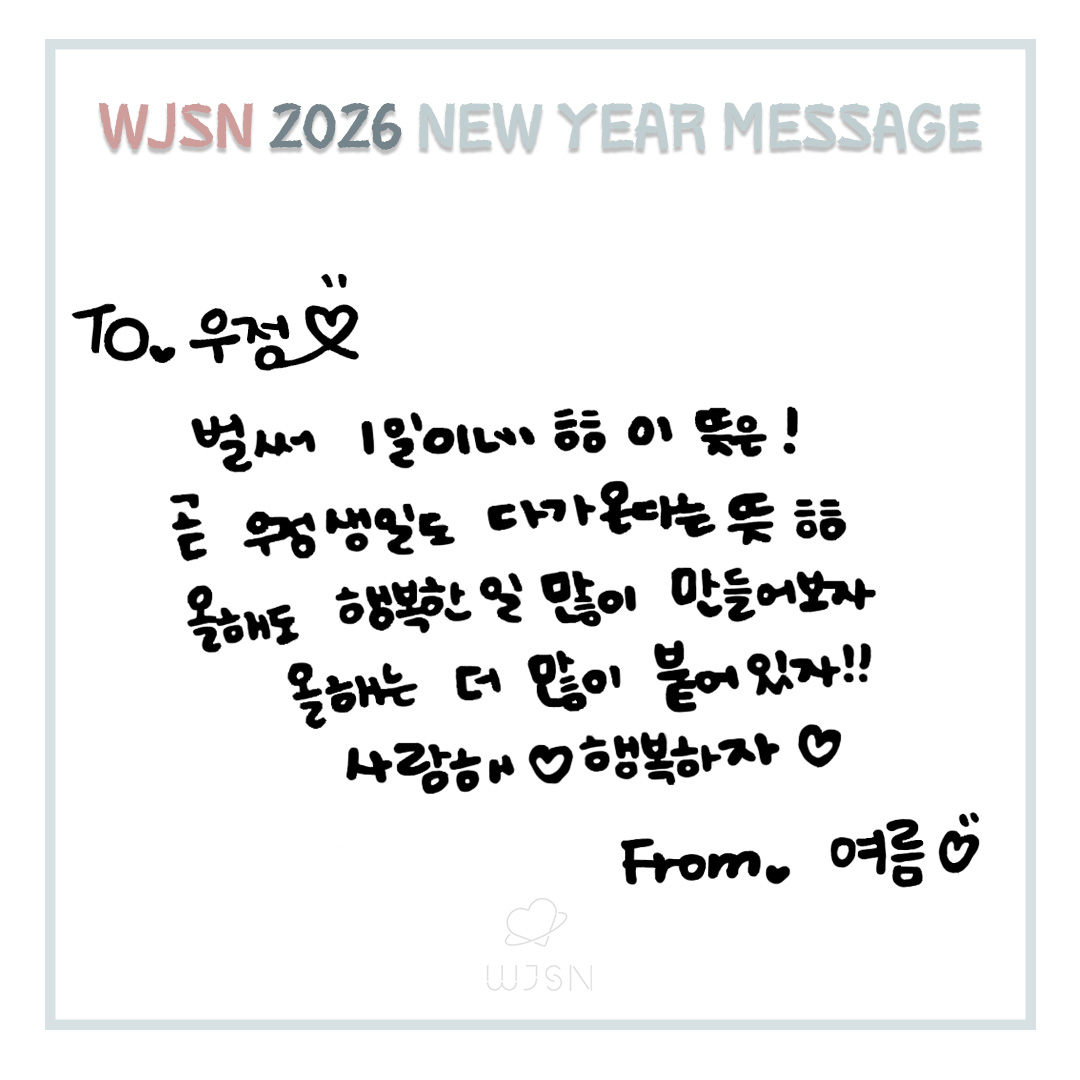 WJSN 2026 NEW YEAR MESSAGE
To. 우정♡
벌써 1월이네 ㅎㅎ 이 뜻은!
곧 우정생일도 다가온다는 뜻 ㅎㅎ
올해도 행복한 일 많이 만들어보자
올해는 더 많이 붙어있자!!
사랑해 ♡ 행복하자 ♡
From. 여름♡
WJSN